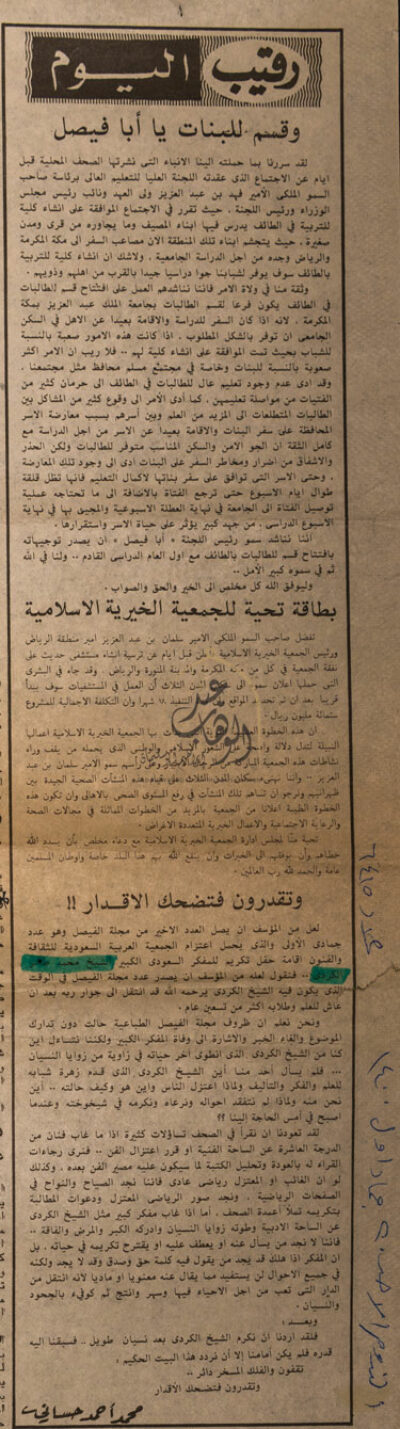 رقيب اليوم
وقسم للبنات يا أبا فيصل
لقد سررنا بما حملته الينا الانباء التى نشرتها الصحف المحلية قبل
ايام عن الاجتماع الذى عقدته اللجنة العليا للتعليم العالى برئاسة صاحب
السمو الملكى الأمير فهد بن عبد العزيز ولى العهد ونائب رئيس مجلس
الوزراء ورئيس اللجنة . حيث تقرر في الاجتماع الموافقة على انشاء كلية
للتربية في الطائف يدرس فيها ابناء المصيف وما يجاوره من قرى ومدن
صغيرة . حيث يتجشم ابناء تلك المنطقة الان مصاعب السفر الى مكة المكرمة
والرياض وجده من اجل الدراسة الجامعية . ولاشك ان انشاء كلية للتربية
بالطائف سوف يوفر لشبابنا جوا دراسيا جيدا بالقرب من اهلهم وذويهم .
وثقة منا في ولاة الامر فاننا نناشدهم العمل على افتتاح قسم للطالبات
في الطائف يكون فرعا لقسم الطالبات بجامعة الملك عبد العزيز بمكة
المكرمة . لانه اذا كان السفر للدراسة والاقامة بعيدا عن الاهل في السكن
الجامعى ان توفر بالشكل المطلوب . اذا كانت هذه الامور صعبة بالنسبة
للشباب بحيث تمت الموافقة على انشاء كلية لهم .. فلا ريب ان الامر اكثر
صعوبة بالنسبة للبنات وخاصة في مجتمع مسلم محافظ مثل مجتمعنا .
وقد ادى عدم وجود تعليم عال للطالبات في الطائف الى حرمان كثير من
الفتيات من مواصلة تعليمهن . كما أدى الأمر الى وقوع كثير من المشاكل بين
الطالبات المتطلعات الى المزيد من العلم وبين أسرهم بسبب معارضة الاسر
المحافظة على سفر البنات والاقامة بعيدا عن الاسر من اجل الدراسة مع
كامل الثقة ان الجو الامن والسكن المناسب متوفر للطالبات ولكن الحذر
والاشفاق من اضرار ومخاطر السفر على البنات ادى الى وجود تلك المعارضة
. وحتى الاسر التى توافق على سفر بناتها لاكمال التعليم فانها تظل قلقة
طوال ايام الاسبوع حتى ترجع الفتاة بالاضافة الى ما تحتاجه عملية
توصيل الفتاة الى الجامعة في نهاية العطلة الاسبوعية والمجيئ بها في نهاية
الاسبوع الدراسى . من جهد كبير يؤثر على حياة الاسر واستقرارها .
اننا نناشد سمو رئيس اللجنة « أبا فيصل » ان يصدر توجيهاته
بافتتاح قسم للطالبات بالطائف مع اول العام الدراسى القادم .. ولنا في الله
ثم في سموه كبير الأمل ..
وليوفق الله كل مخلص الى الخير والحق والصواب .
بطاقة تحية للجمعية الخيرية الاسلامية
تفضل صاحب السمو الملكى الامير سلمان بن عبد العزيز امير منطقة الرياض
ورئيس الجمعية الخيرية الاسلامية فأعلن قبل ايام عن ترسية انشاء مستشفى حديث على
نفقة الجمعية في كل من مكة المكرمة والمدينة المنورة والرياض . وقد جاء في البشرى
التى حملها اعلان سمو ان العمل في المستشفيات سوف يبدأ
قريبا بعد ان تم تحديد المواقع التنفيذ ١٨ شهرا وان التكلفة الاجمالية للمشروع
ستمائة مليون ريال .
ان هذه الخطوة بها الجمعية الخيرية الاسلامية اعمالها
النبيلة لتدل دلالة الاسلامى والوطنى الذى يحمله من يقف وراء
نشاطات هذه الجمعية وعلى رأسهم سمو الامير سلمان بن عبد
العزيز .. واننا نهنىء سكان المدن الثلاث على قيام هذه المنشآت الصحية الجيدة بين
ظهرانيهم ونرجو ان تساهم تلك المنشآت في رفع المستوى الصحى بالاهالى وان تكون هذه
الخطوة الطيبة اعلانا من الجمعية بالمزيد من الخطوات المماثلة في مجالات الصحة
والرعاية الاجتماعية والاعمال الخيرية المتعددة الاغراض .
تحية منا لمجلس ادارة الجمعية الخيرية الاسلامية مع دعاء مخلص بأن يسدد الله
خطاهم وأن يوفقهم الى الخيرات وان ينفع الله بهم هذا البلد خاصة واوطان المسلمين
عامة والحمد لله رب العالمين .
عبد الوهاب
وتقدرون فتضحك الاقدار !!
لعل من المؤسف ان يصل العدد الاخير من مجلة الفيصل وهو عدد
جمادى الاولى والذى يحمل اعتزام الجمعية العربية السعودية للثقافة
والفنون اقامة حفل تكريم للمفكر السعودى الكبير الشيخ محمد طاهر
الكردى .. فنقول لعله من المؤسف ان يصدر عدد مجلة الفيصل في الوقت
الذى يكون فيه الشيخ الكردى يرحمه الله قد انتقل الى جوار ربه بعد ان
عاش للعلم وطلابه اكثر من تسعين عام .
ونحن نعلم ان ظروف مجلة الفيصل الطباعية حالت دون تدارك
الموضوع والغاء الخبر والاشارة الى وفاة المفكر الكبير ولكننا نتساءل اين
كنا من الشيخ الكردى الذى انطوى آخر حياته في زاوية من زوايا النسيان
... فلم يسأل أحد منا أين الشيخ الكردى الذى قدم زهرة شبابه
للعلم والفكر والتأليف ولماذا اعتزل الناس واين هو وكيف حالته .. أين
نحن منه ولماذا لم نتفقد احواله ونرعاه ونكرمه في شيخوخته وعندما
اصبح في أمس الحاجة الينا ؟؟
لقد تعودنا ان نقرأ في الصحف تساؤلات كثيرة اذا ما غاب فنان من
الدرجة العاشرة عن الساحة الفنية او قرر اعتزال الفن .. فنرى رجاءات
القراء له بالعودة وتحليل الكتبة لما سيكون عليه مصير الفن بعده . وكذلك
لو ان الغائب او المعتزل رياضى عادى فاننا نجد الصياح والنواح في
الصفحات الرياضية . ونجد صور الرياضى المعتزل ودعوات المطالبة
بتكريمه تملأ اعمدة الصحف . أما اذا غاب مفكر كبير مثل الشيخ الكردى
عن الساحة الادبية وطوته زوايا النسيان وادركه الكبر والمرض والفاقة ..
فاننا لا نجد من يسأل عنه او يعطف عليه او يقترح تكريمه في حياته . بل
ان المفكر اذا هلك قد يجد من يقول فيه كلمة حق وصدق وقد لا يجد ولكنه
في جميع الاحوال لن يستفيد مما يقال عنه معنويا او ماديا لانه انتقل من
الدار التى تعب من اجل الاحياء فيها وسهر وانتج ثم كوفىء بالجحود
والنسيان .
وبعـد :
فلقد اردنا ان نكرم الشيخ الكردى بعد نسيان طويل .. فسبقنا اليه
قدره فلم يكن أمامنا إلا أن نردد هذا البيت الحكيم :
تقفون والفلك المسخر دائر ..
وتقدرون فتضحك الأقدار
محمد أحمد حساني
عدد ٦٤١٥